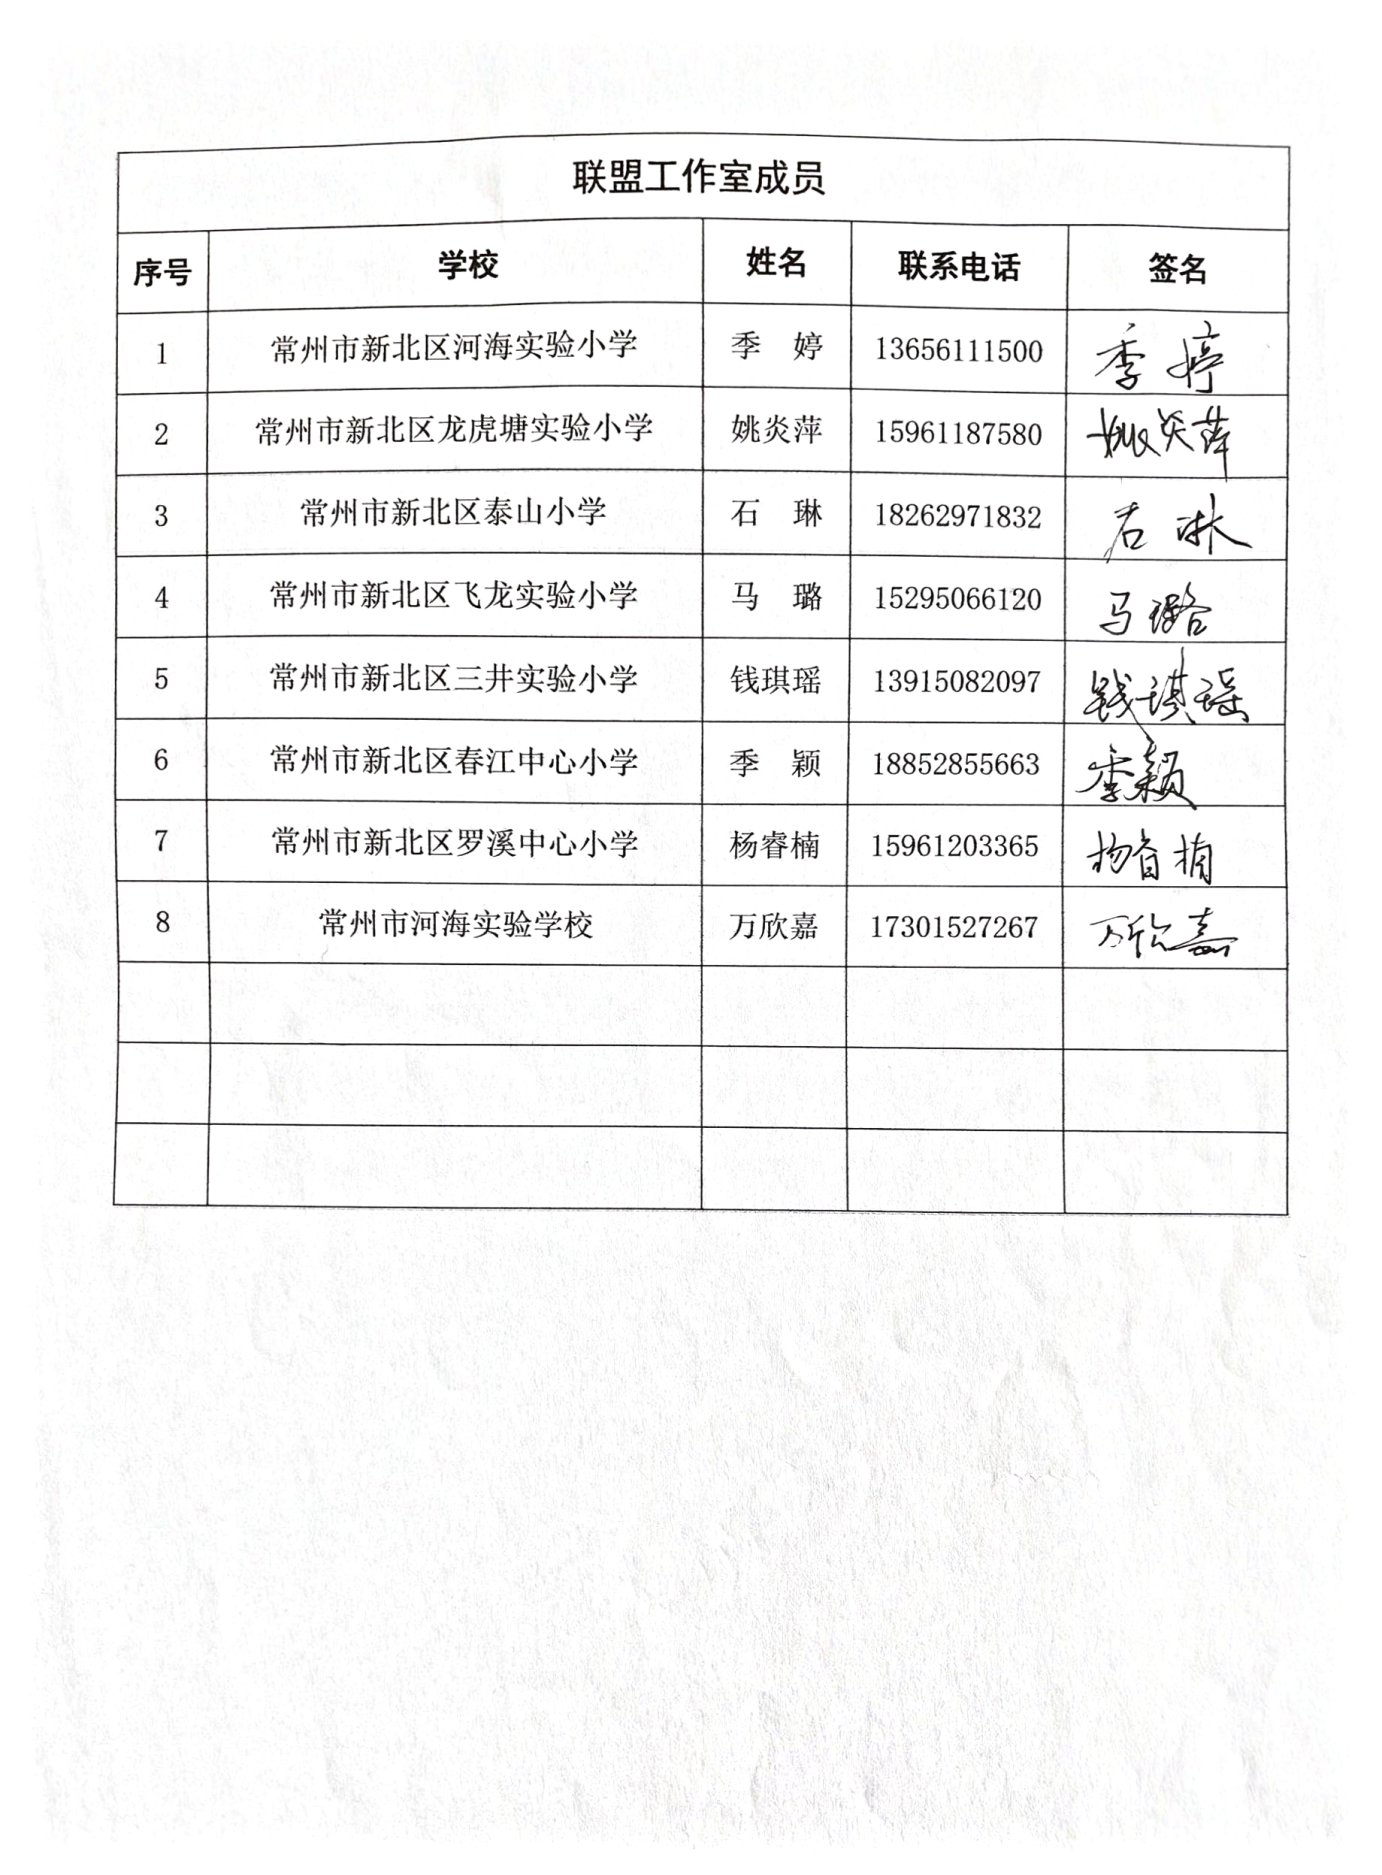 联盟工作室成员
序号 学校 姓名 联系电话 签名
1 常州市新北区河海实验小学 季 婷 13656111500 季婷
2 常州市新北区龙虎塘实验小学 姚炎萍 15961187580 姚炎萍
3 常州市新北区泰山小学 石 琳 18262971832 石琳
4 常州市新北区飞龙实验小学 马 璐 15295066120 马璐
5 常州市新北区三井实验小学 钱琪瑶 13915082097 钱琪瑶
6 常州市新北区春江中心小学 季 颖 18852855663 季颖
7 常州市新北区罗溪中心小学 杨睿楠 15961203365 杨睿楠
8 常州市河海实验学校 万欣嘉 17301527267 万欣嘉